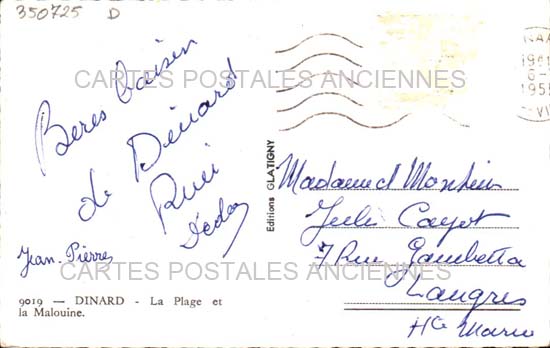 350725 D
Beres baisers
de Dinard
Jean-Pierre
9019 — DINARD - La Plage et
la Malouine.
Editions GLATIGNY
1955
Madame et Monsieur
Jules Cayot
7 Rue Gambetta
Langres
Hte Marne
CARTES POSTALES ANCIENNES
CARTES POSTALES ANCIENNES